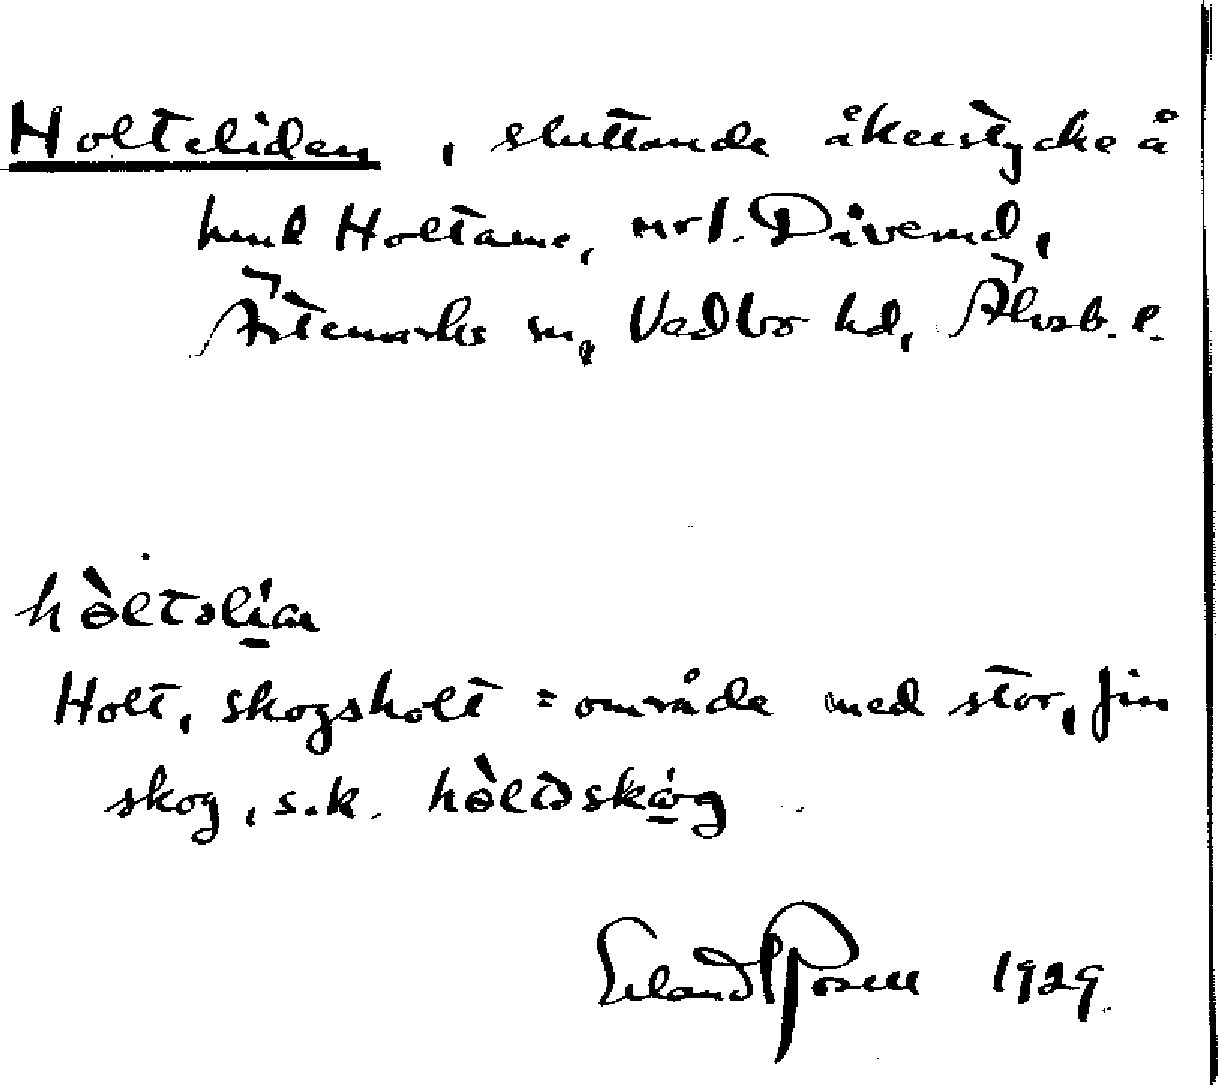 Holteliden, sluttande åkerstycke å
hmd Holtane, nrl. Diverud,
Ärtemarks sn, Vedbo hd, Älvsb. l.
hòltəlían
Holt, skogsholt = område med stor, fin
skog, s.k. hòltəskóg.
Erland Rosell 1929